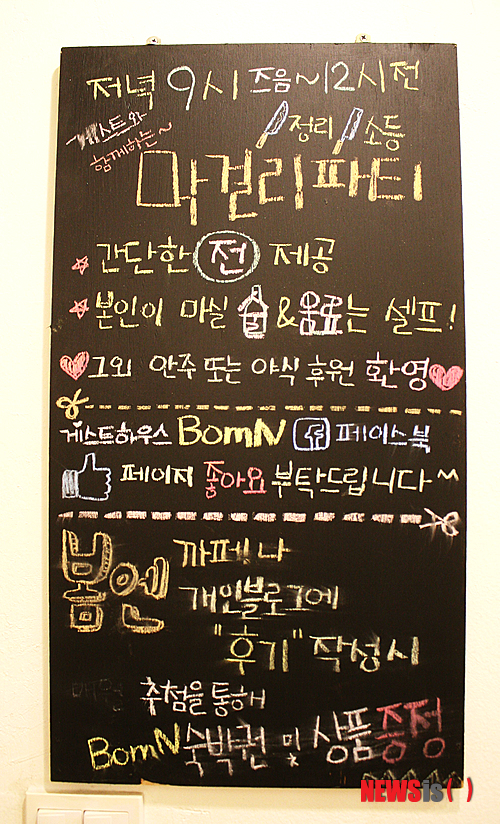 저녁 9시 즈음~12시 전
게스트와
함께하는~
정리 소등
막걸리파티
간단한 전 제공
본인이 마실 술&음료는 셀프!
그외 안주 또는 야식 후원 환영
게스트하우스 BomN f 페이스북
페이지 좋아요 부탁드립니다^^
봄엔 까페나
개인블로그에
"후기" 작성시
매월 추첨을통해
BomN 숙박권 및 상품증정
NEWSis()